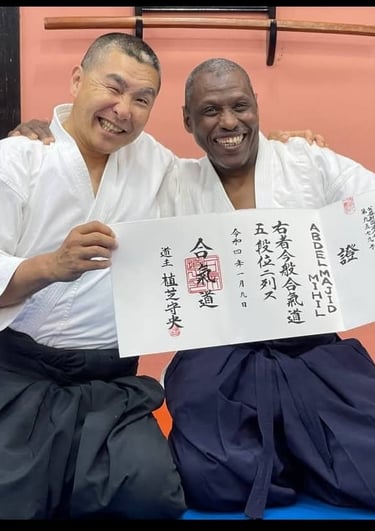 證
ABDEL MAJID
MIHIL
右者今般合氣道
五段位ニ列ス
令和四年一月九日
合氣道
道主 植芝守央